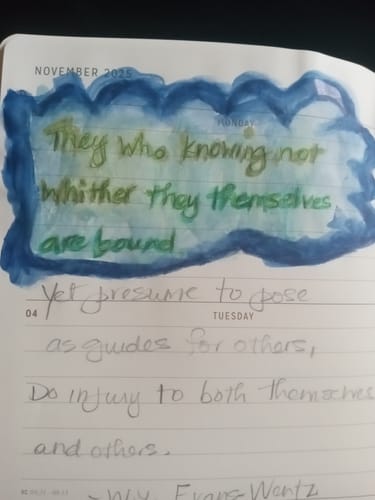 NOVEMBER 2025
MONDAY
They who knowing not
whither they themselves
are bound
Yet presume to pose
04 TUESDAY
as guides for others,
Do injury to both themselves
and others.
- W.Y. Evans-Wentz